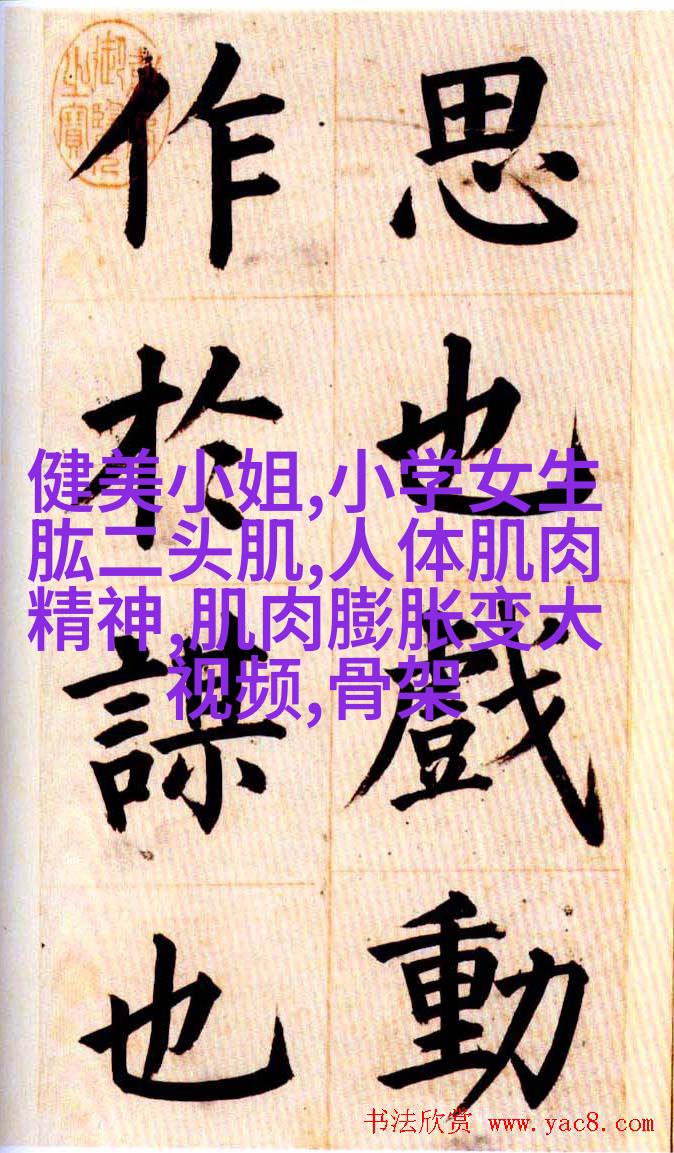 思也戲動
作於謀也
健美小姐,小学女生
肱二头肌,人体肌肉
精神,肌肉膨胀变大
视频,骨架
书法欣赏 www.yac8.com